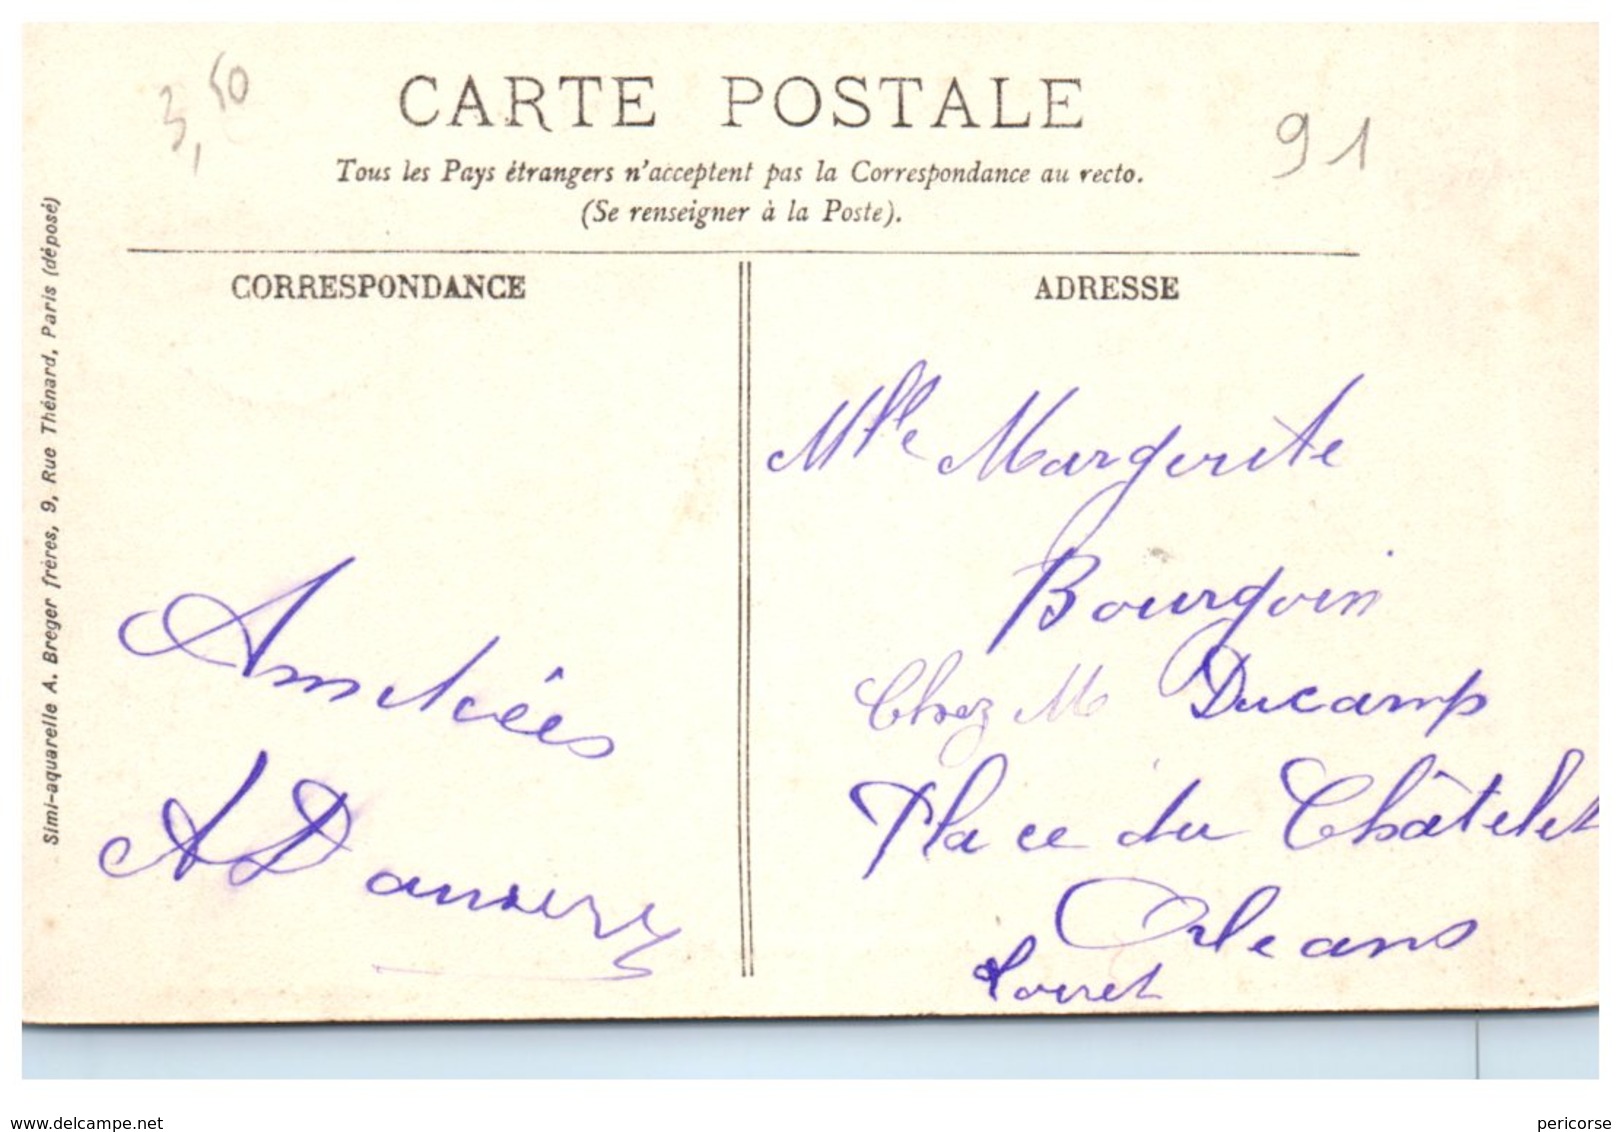 3,50
CARTE POSTALE
91
Tous les Pays étrangers n'acceptent pas la Correspondance au recto.
(Se renseigner à la Poste).
CORRESPONDANCE
ADRESSE
Simi-aquarelle A. Breger frères, 9, Rue Thénard, Paris (déposé)
Amitiées
A
Mlle Margerite
Bourgoin
Chez M Ducamp
Place du Châtelet
Orleans
Loiret
www.delcampe.net
pericorse